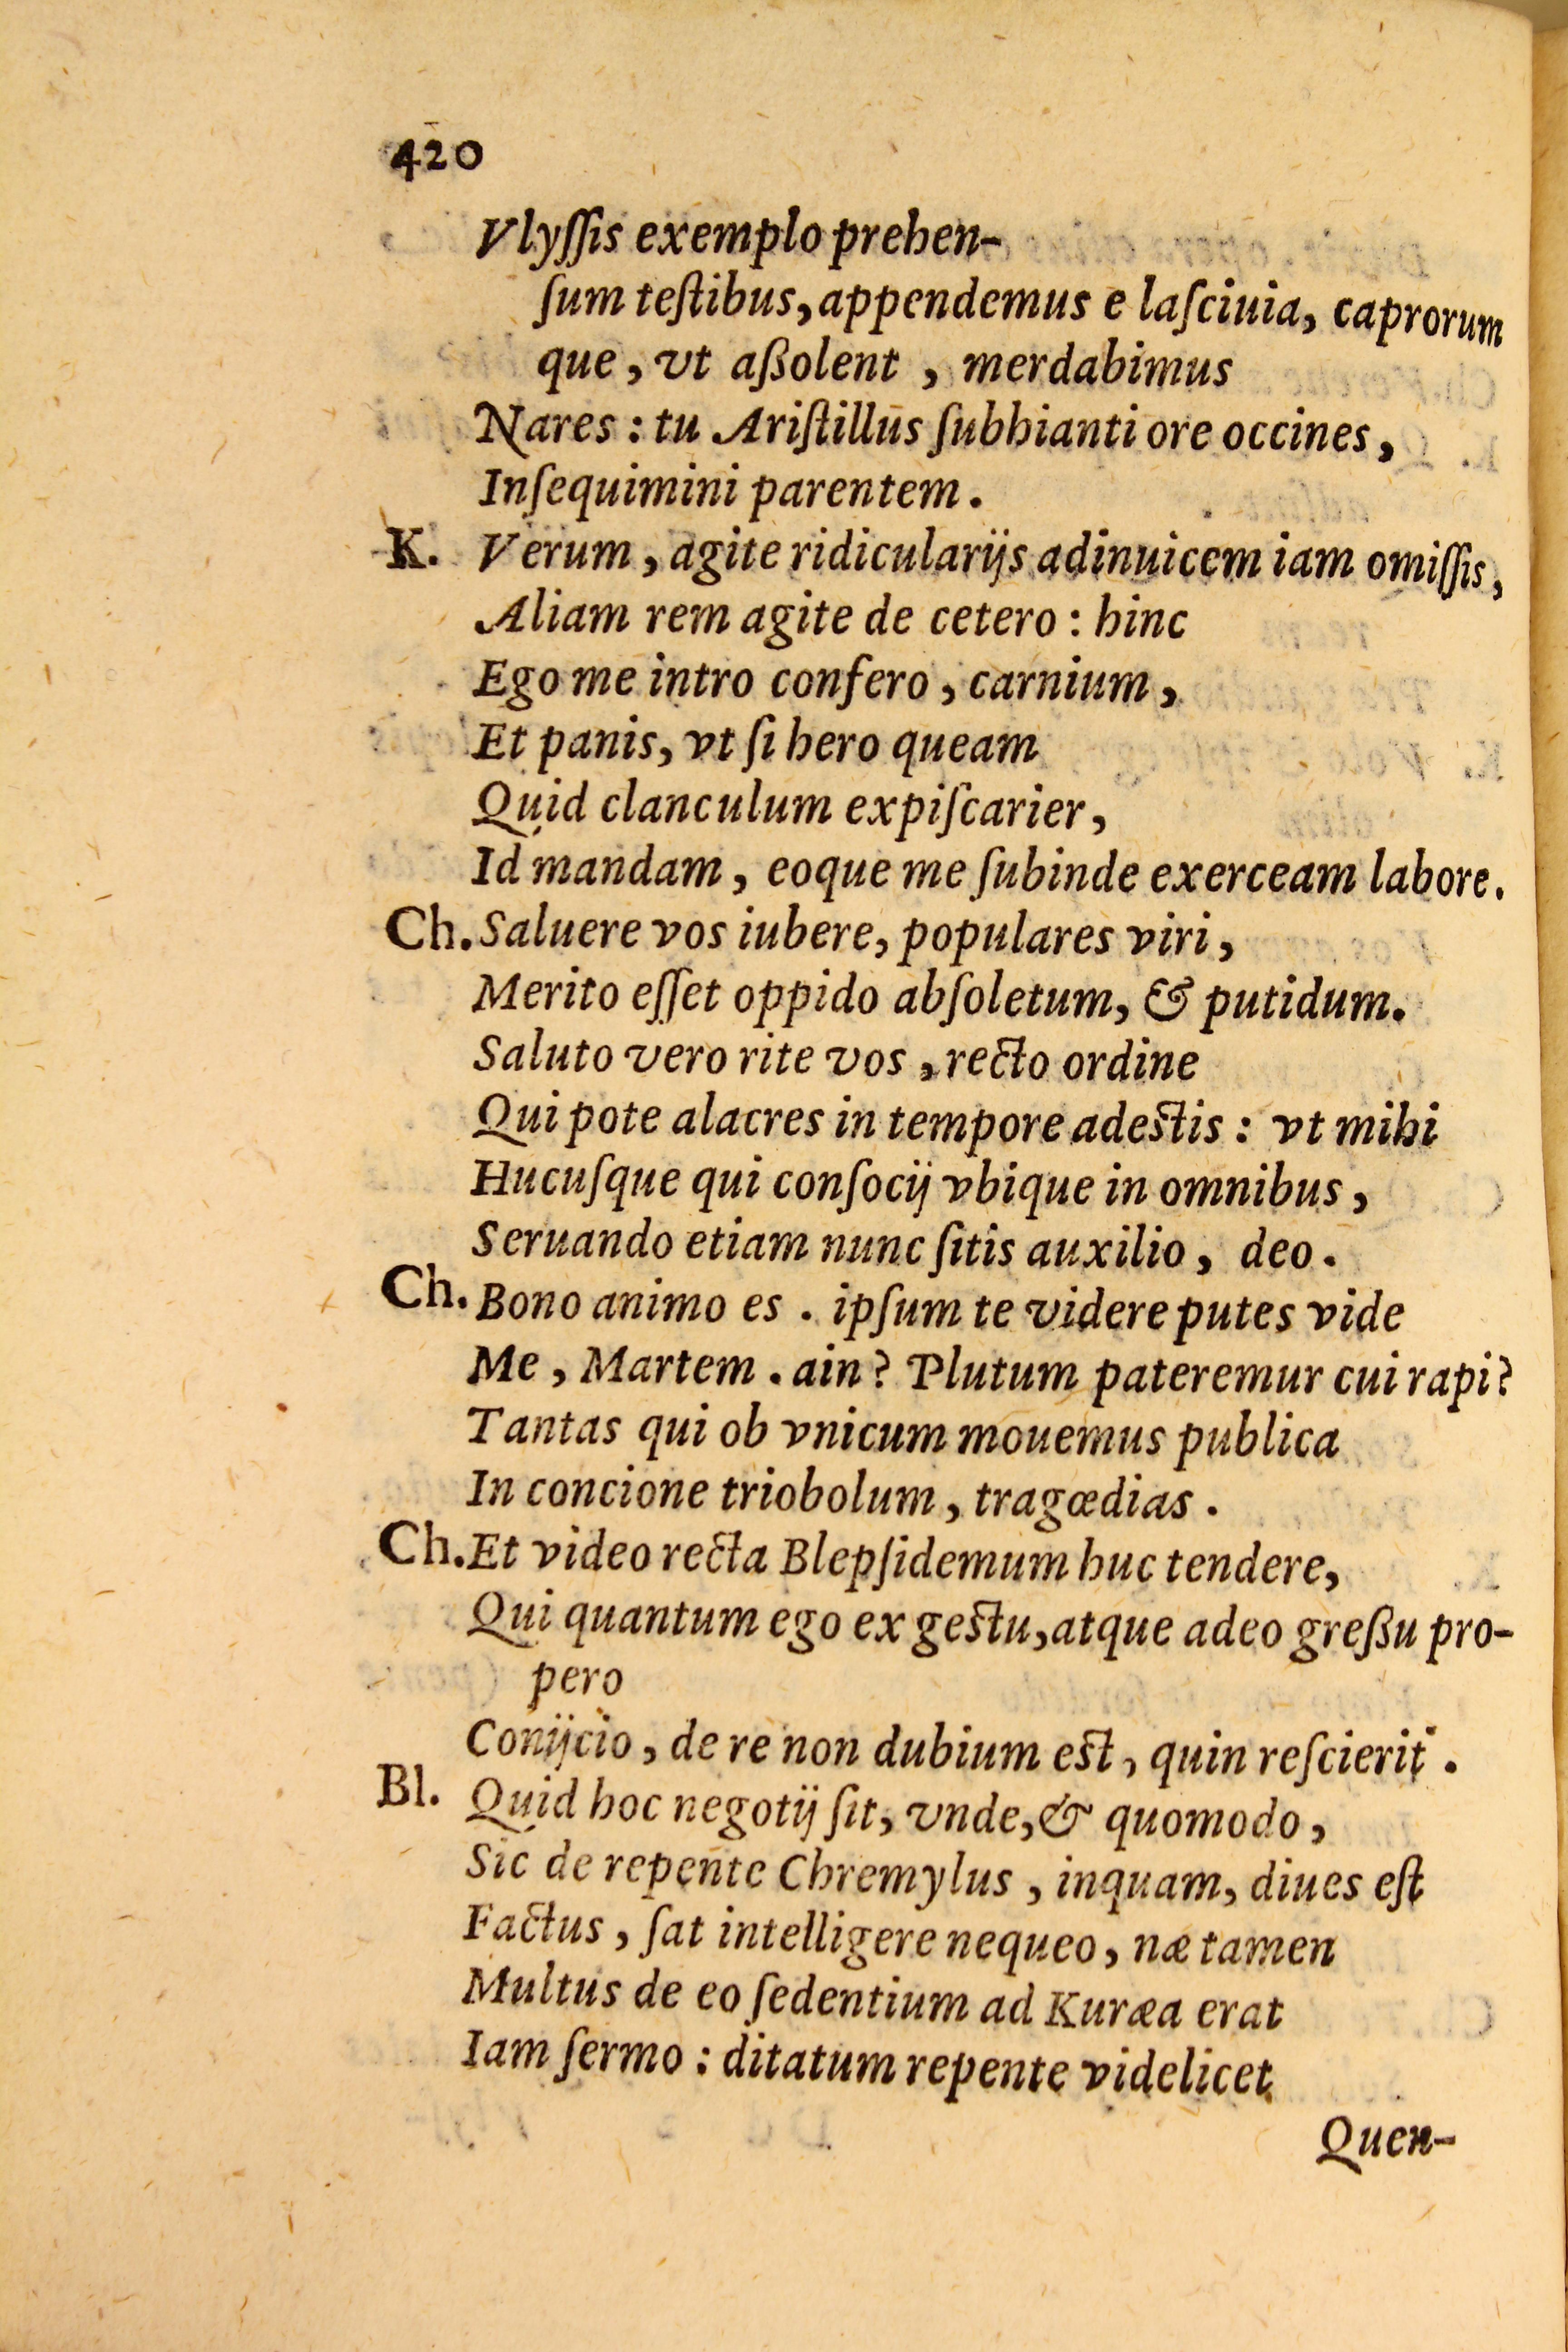 420
Vlyſſis exemplo prehen-
ſum teſtibus, appendemus e laſciuia, caprorum
que, vt aßolent, merdabimus
Nares: tu Ariſtillus ſubhianti ore occines,
Inſequimini parentem.
K. Verum, agite ridicularijs adinuicem iam omiſſis,
Aliam rem agite de cetero: hinc
Ego me intro confero, carnium,
Et panis, vt ſi hero queam
Quid clanculum expiſcarier,
Id mandam, eoque me ſubinde exerceam labore.
Ch. Saluere vos iubere, populares viri,
Merito eſſet oppido abſoletum, & putidum.
Saluto vero rite vos, recto ordine
Qui pote alacres in tempore adeſtis: vt mihi
Hucuſque qui conſocij vbique in omnibus,
Seruando etiam nunc ſitis auxilio, deo.
Ch. Bono animo es. ipſum te videre putes vide
Me, Martem. ain? Plutum pateremur cui rapi?
Tantas qui ob vnicum mouemus publica
In concione triobolum, tragœdias.
Ch. Et video recta Blepſidemum huc tendere,
Qui quantum ego ex geſtu, atque adeo greßu pro-
pero
Conijcio, de re non dubium eſt, quin reſcierit.
Bl. Quid hoc negotij ſit, vnde, & quomodo,
Sic de repente Chremylus, inquam, diues eſt
Factus, ſat intelligere nequeo, næ tamen
Multus de eo ſedentium ad Kuræa erat
Iam ſermo: ditatum repente videlicet
Quen-